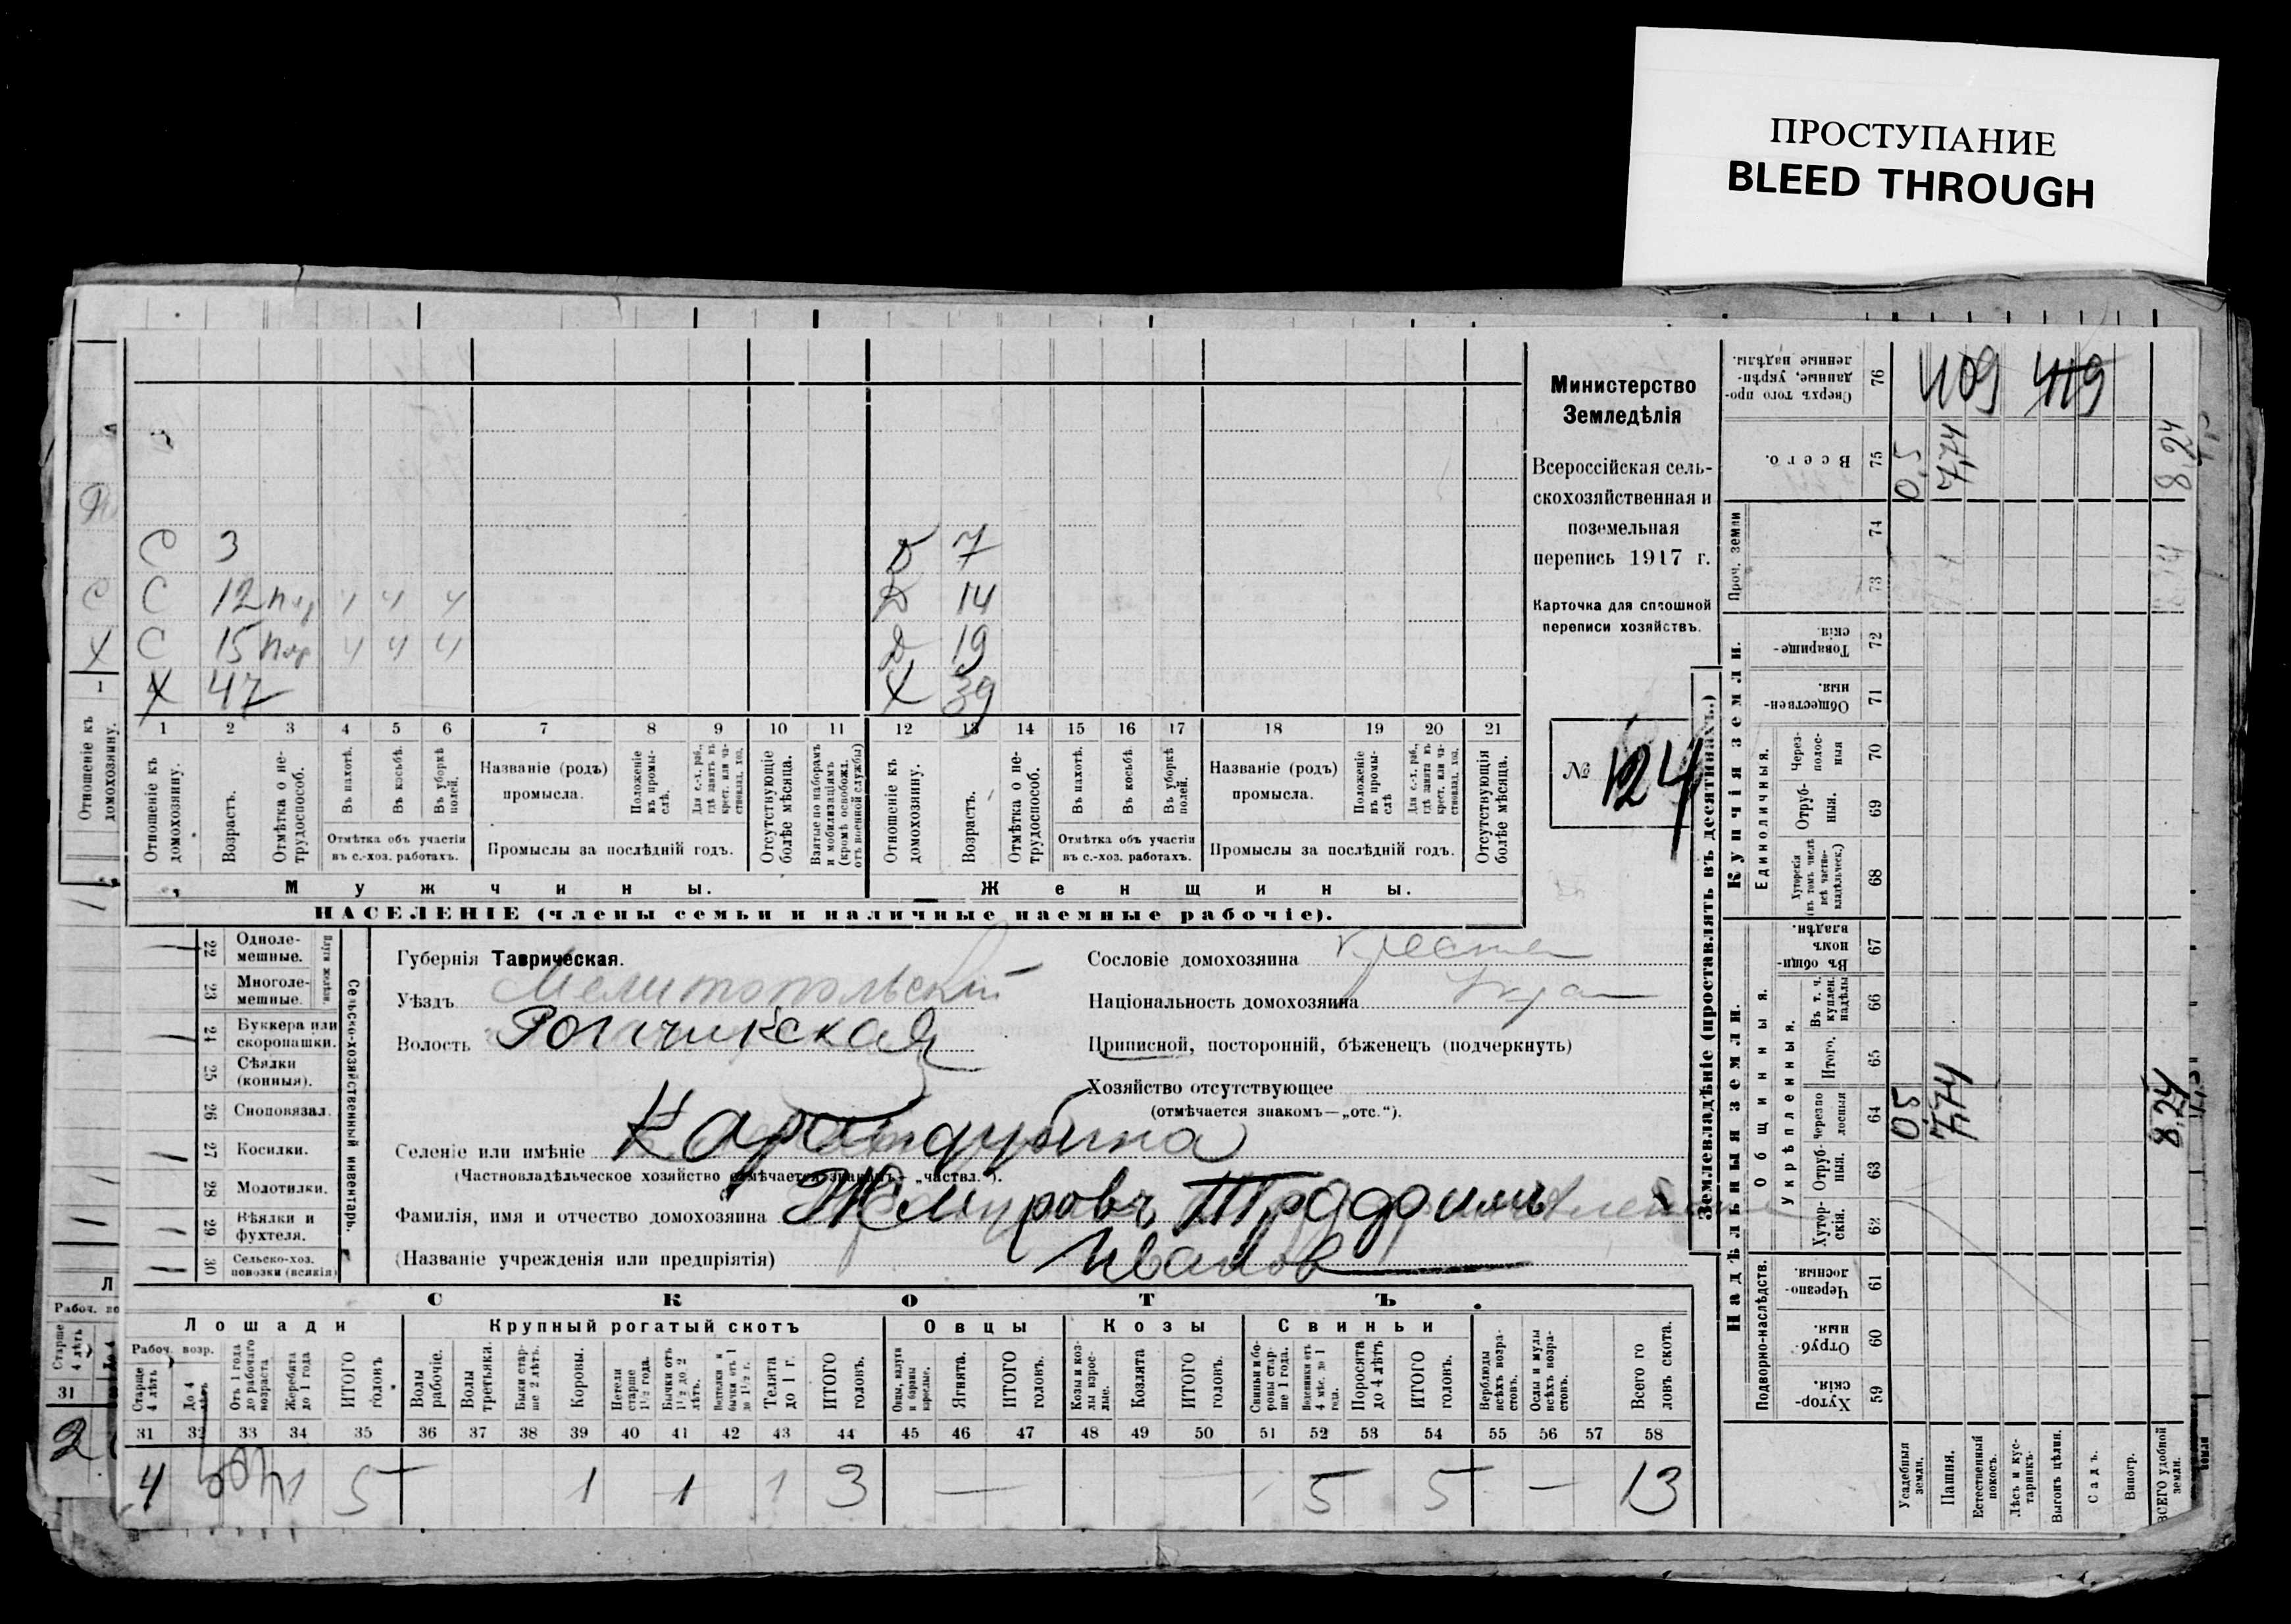 ПРОСТУПАНИЕ
BLEED THROUGH
Министерство
Земледѣлія
Всероссійская сель-
скохозяйственная и
поземельная
перепись 1917 г.
Карточка для сплошной
переписи хозяйствъ.
№ 124
С 3
С 12 4 4 4
С 15 4 4 4
Х 47
7
Д 14
Д 19
Х 39
1 2 3 4 5 6 7 8 9 10 11 12 13 14 15 16 17 18 19 20 21
Отношеніе къ домохозяину.
Возрастъ.
Отмѣтка о не-трудоспособ.
Въ пахотѣ.
Въ косьбѣ.
Въ уборкѣ полей.
Отмѣтка объ участіи
въ с.-хоз. работахъ.
Названіе (родъ)
промысла.
Положеніе въ промы-слѣ.
Для с.-х. раб., гдѣ занятъ въ крест. или ча-стновлад. хоз.
Промыслы за послѣдній годъ.
Отсутствующіе болѣе мѣсяца.
Взятые по наборамъ и мобилизаціямъ (кромѣ освобожд. отъ военной службы)
Отношеніе къ домохозяину.
Возрастъ.
Отмѣтка о не-трудоспособ.
Въ пахотѣ.
Въ косьбѣ.
Въ уборкѣ полей.
Отмѣтка объ участіи
въ с.-хоз. работахъ.
Названіе (родъ)
промысла.
Положеніе въ промы-слѣ
Для с.-х. раб., гдѣ занята въ крест. или ча-стновлад. хоз.
Промыслы за послѣдній годъ.
Отсутствующія болѣе мѣсяца.
Мужчины.
Женщины.
НАСЕЛЕНІЕ (члены семьи и наличные наемные рабочіе).
22 Одноле-мешные.
23 Многоле-мешные.
24 Буккера или скоропашки.
25 Сѣялки (конныя).
26 Сноповязал.
27 Косилки.
28 Молотилки.
29 Вѣялки и фухтеля.
30 Сельско-хоз. повозки (всякія)
Сельско-хозяйственный инвентарь.
Губернія Таврическая.
Уѣздъ Мелитопольскій
Волость Рогачикская
Селеніе или имѣніе
(Частновладѣльческое хозяйство отмѣчается знакомъ— „частвл.“).
Фамилія, имя и отчество домохозяина
Иванов
(Названіе учрежденія или предпріятія)
Сословіе домохозяина крестья
Національность домохозяина Укра
Приписной, посторонній, бѣженецъ (подчеркнуть)
Хозяйство отсутствующее
(отмѣчается знакомъ—„отс.“).
СКОТЪ.
Лошади
Крупный рогатый скотъ
Овцы
Козы
Свиньи
Рабоч. возр.
Старше 4 лѣтъ
До 4 лѣтъ
Отъ 1 года до рабочаго возраста
Жеребята до 1 года
ИТОГО головъ
Волы рабочіе.
Волы третьяки.
Быки стар-ше 2 лѣтъ.
Коровы.
Нетели старше 1½ года.
Бычки отъ 1½ до 2 лѣтъ.
Телята до 1 г.
ИТОГО головъ.
Ягнята.
ИТОГО головъ.
Козы и коз-лы взрос-лые.
Козлята
ИТОГО головъ.
Свиньи и бо-ровы стар-ше 1 года.
Поросята до 4 лѣтъ
ИТОГО головъ.
Верблюды всѣхъ возра-стовъ.
Ослы и мулы всѣхъ возра-стовъ.
Всего го ловъ скота.
31 32 33 34 35 36 37 38 39 40 41 42 43 44 45 46 47 48 49 50 51 52 53 54 55 56 57 58
4 1 5 1 1 1 3 — 5 5 — 13
Землевладѣніе (проставлять въ десятинахъ.)
Надѣльныя земли.
Купчія земли.
Проч. земли
Подворно-наслѣдств.
Общинныя.
укрѣпленныя.
Единоличныя.
76 Сверхъ того про-данные, укрѣп-ленные надѣлы.
409 419
75 Всего.
0,5 7,74 8,24
74
73
72 Товарище-скія.
71 Обществен-ныя.
70 Через-полос-ныя
69 Отруб-ныя.
68 Хуторскія (въ томъ числѣ всѣ частно-владѣльческ.)
67 Въ общи-номъ владѣн.
66 Въ т. ч. куплен. надѣлы
65 Итого.
64 Черезпо лосныя
0,5 7,74 8,24
63 Отруб-ныя.
62 Хутор-скія.
61 Черезпо-лосныя.
60 Отруб-ныя.
59 Хутор-скія.
Усадебныя земли.
Пашня.
Естественный покосъ.
Лѣсъ и кус-тарникъ.
Выгонъ цѣлин.
Садъ.
Виногр.
ВСЕГО удобной земли.
Отношеніе къ домохозяину.
31
2